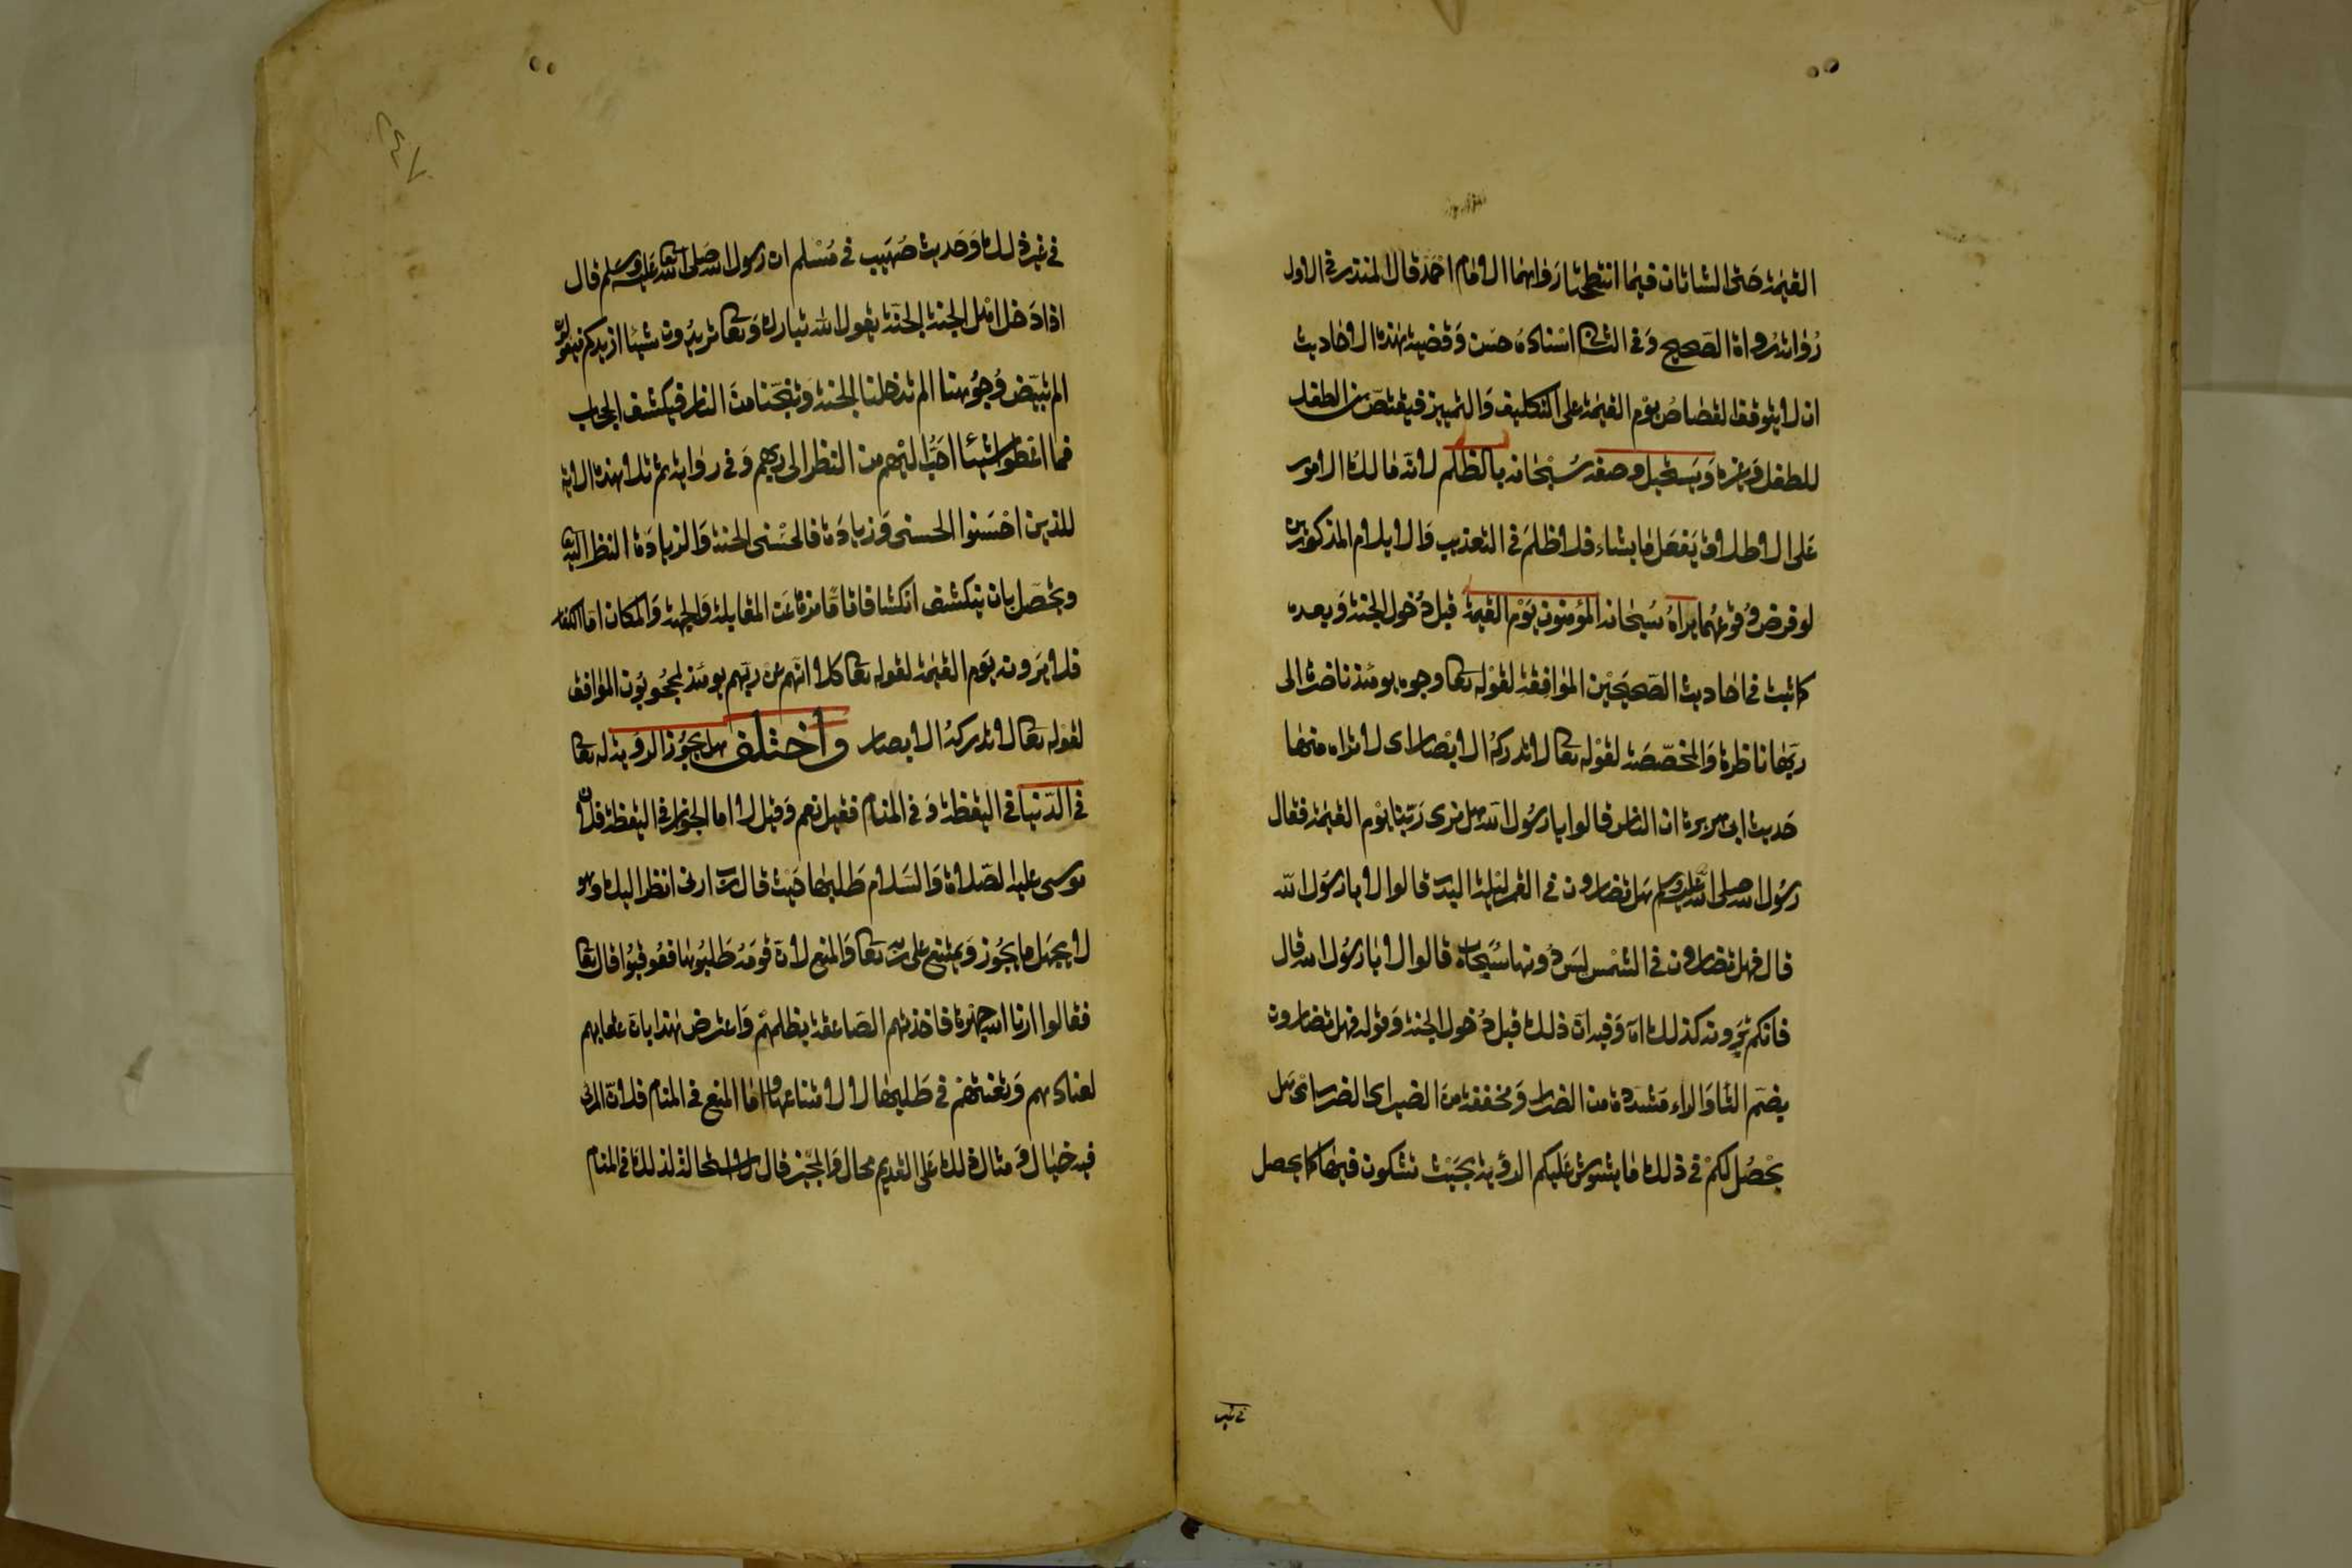 القيمة حتى الشاتان فيما انتطحتا رواهما الامام احمد قال المنذرى فى الاول
رواته رواة الصحيح وفى الثانى اسناده حسن وقضية هذه الاحاديث
ان لا يتوقف القصاص يوم القيمة على التكليف والتمييز فيقتص من الطفل
للطفل وغيره ويستحيل وصفه سبحانه بالظلم لانه مالك الامور
على الاطلاق يفعل ما يشاء فلا ظلم فى التعذيب والايلام المذكورين
لو فرض وقوعهما يراه سبحانه المؤمنون يوم القيمة قبل دخول الجنة وبعده
كما ثبت فى احاديث الصحيحين الموافقة لقوله تعا وجوه يومئذ ناضرة الى
ربها ناظرة والمخصصة لقوله تعا لا تدركه الابصار اى لا تراه منها
حديث ابى هريرة ان الناس قالوا يا رسول الله هل نرى ربنا يوم القيمة فقال
رسول الله صلى الله عليه وسلم هل تضارون فى القمر ليلة البدر قالوا لا يا رسول الله
قال فهل تضارون فى الشمس ليس دونها سحاب قالوا لا يا رسول الله قال
فانكم ترونه كذلك اه وفيه ان ذلك قبل دخول الجنة وقوله فهل تضارون
بضم التا والراء مشددة من الضرار ومخففة من الضير اى الضر اى هل
يحصل لكم فى ذلك ما يشوش عليكم الرؤية بحيث تشكون فيها كما يحصل
فى غير
٢٤٧
فى غير ذلك وحديث صهيب فى مسلم ان رسول الله صلى الله تعا عليه وسلم قال
اذا دخل اهل الجنة الجنة يقول الله تبارك وتعا تريدون شيئا ازيدكم فيقولون
الم تبيض وجوهنا الم تدخلنا الجنة وتنجنا من النار فيكشف الحجاب
فما اعطوا شيئا احب اليهم من النظر الى ربهم وفى رواية ثم تلا هذه الاية
للذين احسنوا الحسنى وزيادة فالحسنى الجنة والزيادة النظر اليه تعا
ويحصل بان ينكشف انكشافا تاما منزها عن المقابلة والجهة والمكان اما الكفار
فلا يرونه يوم القيمة لقوله تعا كلا انهم عن ربهم يومئذ لمحجوبون الموافق
لقوله تعا لا تدركه الابصار واختلف هل يجوز الرؤية له تعا
فى الدنيا فى اليقظة وفى المنام فقيل نعم وقيل لا اما الجواز فى اليقظة فلان
موسى عليه الصلاة والسلام طلبها حيث قال رب ارنى انظر اليك وهو
لا يجهل ما يجوز ويمتنع على ربه تعا والمنع لان قومه طلبوها فعوقبوا قال تعا
فقالوا ارنا الله جهرة فاخذتهم الصاعقة بظلمهم واعترض هذا بان عقابهم
لعنادهم وتعنتهم فى طلبها لا لامتناعها واما المنع فى المنام فلان المرئى
فيه خيال ومثال وذلك على القديم محال والمجيز قال لا استحالة لذلك فى المنام